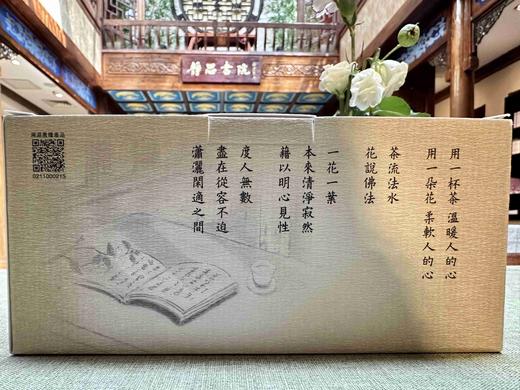 靜思書院
溯源農糧產品
0211000215
用一杯茶 溫暖人的心
用一朵花 柔軟人的心
茶流法水
花說佛法
一花一葉
本來清淨寂然
藉以明心見性
度人無數
盡在從容不迫
瀟灑閑適之間